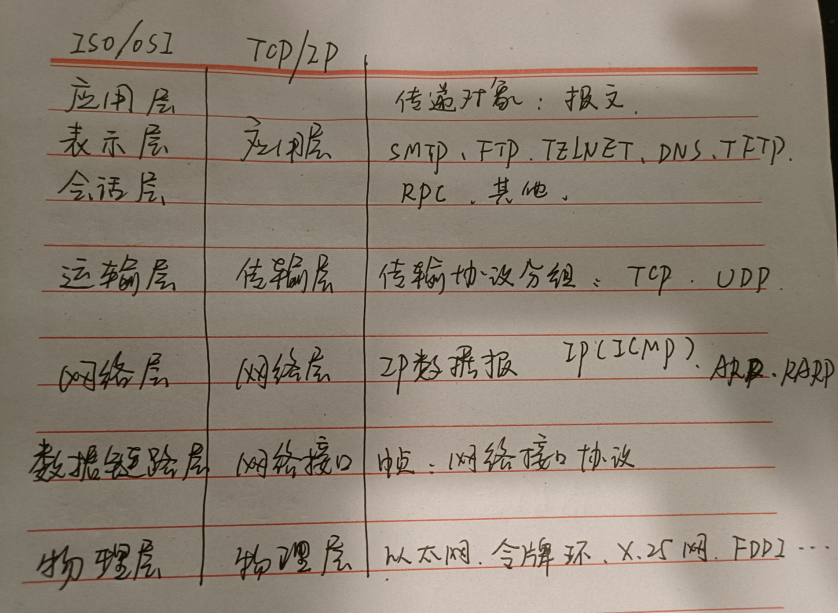 ISO/OSI TCP/IP
应用层 传递对象：报文
表示层 应用层 SMTP、FTP、TELNET、DNS、TFTP、
会话层 RPC、其他、
运输层 传输层 传输协议分组：TCP、UDP
网络层 网络层 IP数据报 IP(ICMP)、ARP、RARP
数据链路层 网络接口 帧：网络接口协议
物理层 物理层 以太网、令牌环、X.25网、FDDI…